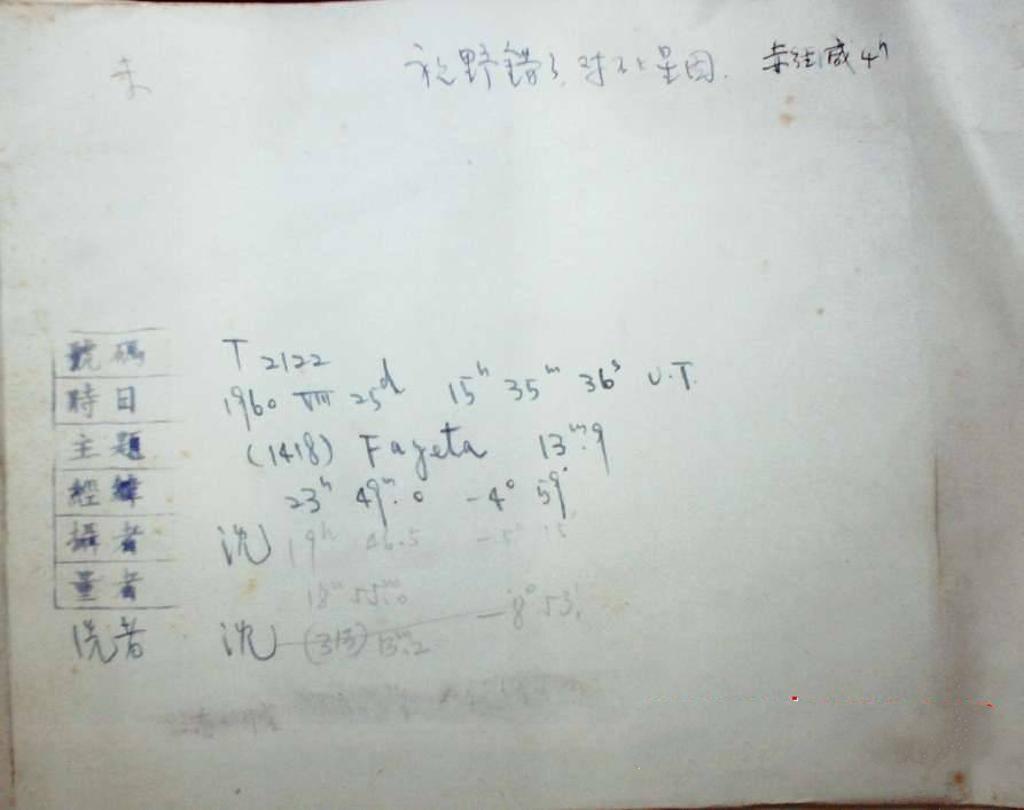 未
视野错了,对不上星图. 赤经减4ʰ
號碼 T 2122
時日 1960 VIII 25ᵈ 15ʰ 35ᵐ 36ˢ U.T.
主題 (1418) Fayeta 13ᵐ.9
經緯 23ʰ 49ᵐ.0 -4° 59'
攝者 沈 19ʰ 46.5 -5° 15'
量者 18ʰ 55ᵐ.0 -8° 53'
洗者 沈 (313) 13ᵐ.2